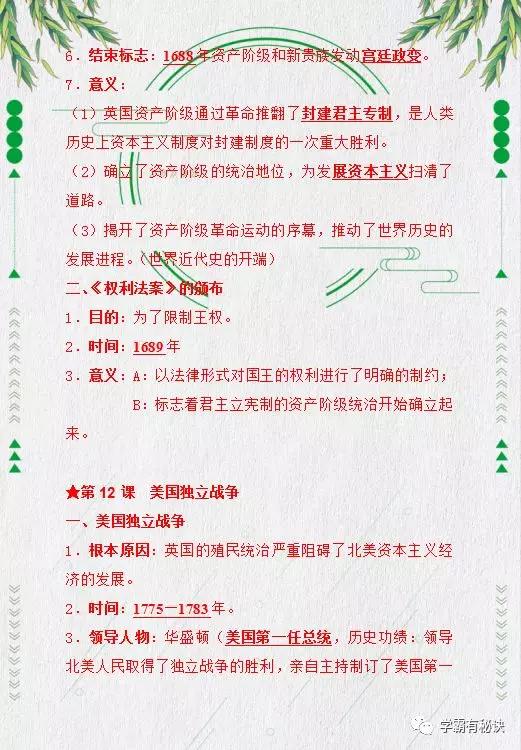 6．结束标志：1688年资产阶级和新贵族发动宫廷政变。
7．意义：
（1）英国资产阶级通过革命推翻了封建君主专制，是人类
历史上资本主义制度对封建制度的一次重大胜利。
（2）确立了资产阶级的统治地位，为发展资本主义扫清了
道路。
（3）揭开了资产阶级革命运动的序幕，推动了世界历史的
发展进程。（世界近代史的开端）
二、《权利法案》的颁布
1．目的：为了限制王权。
2．时间：1689年
3．意义：A：以法律形式对国王的权利进行了明确的制约；
B：标志着君主立宪制的资产阶级统治开始确立起
来。
★第12课 美国独立战争
一、美国独立战争
1．根本原因：英国的殖民统治严重阻碍了北美资本主义经
济的发展。
2．时间：1775－1783年。
3．领导人物：华盛顿（美国第一任总统，历史功绩：领导
北美人民取得了独立战争的胜利，亲自主持制订了美国第一
学霸有秘诀